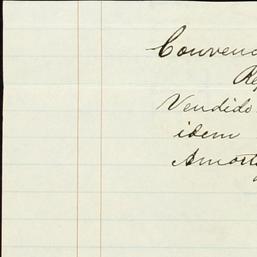 Convenc
Re
Vendido
idem
Amort